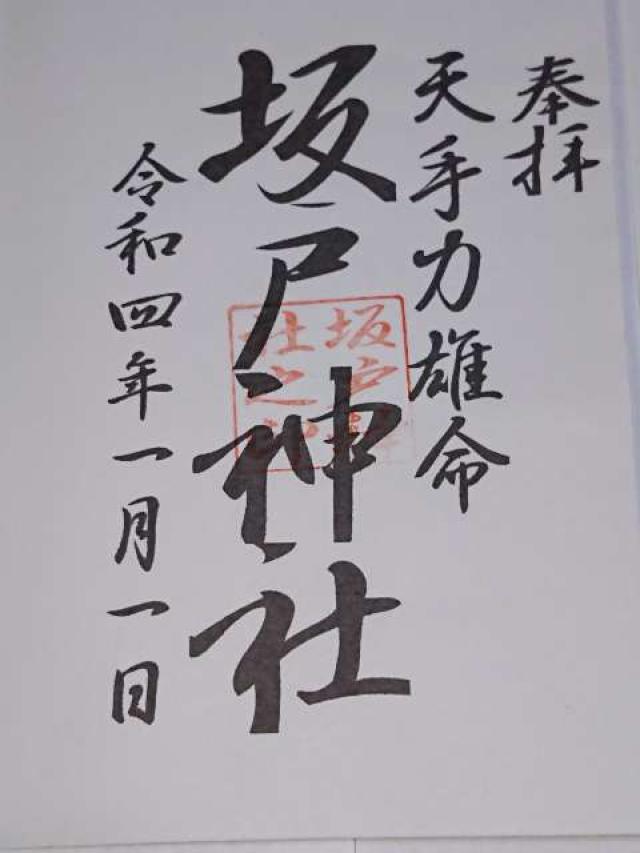 奉拝
天手力雄命
坂戸神社
坂戸神
社之印
令和四年一月一日